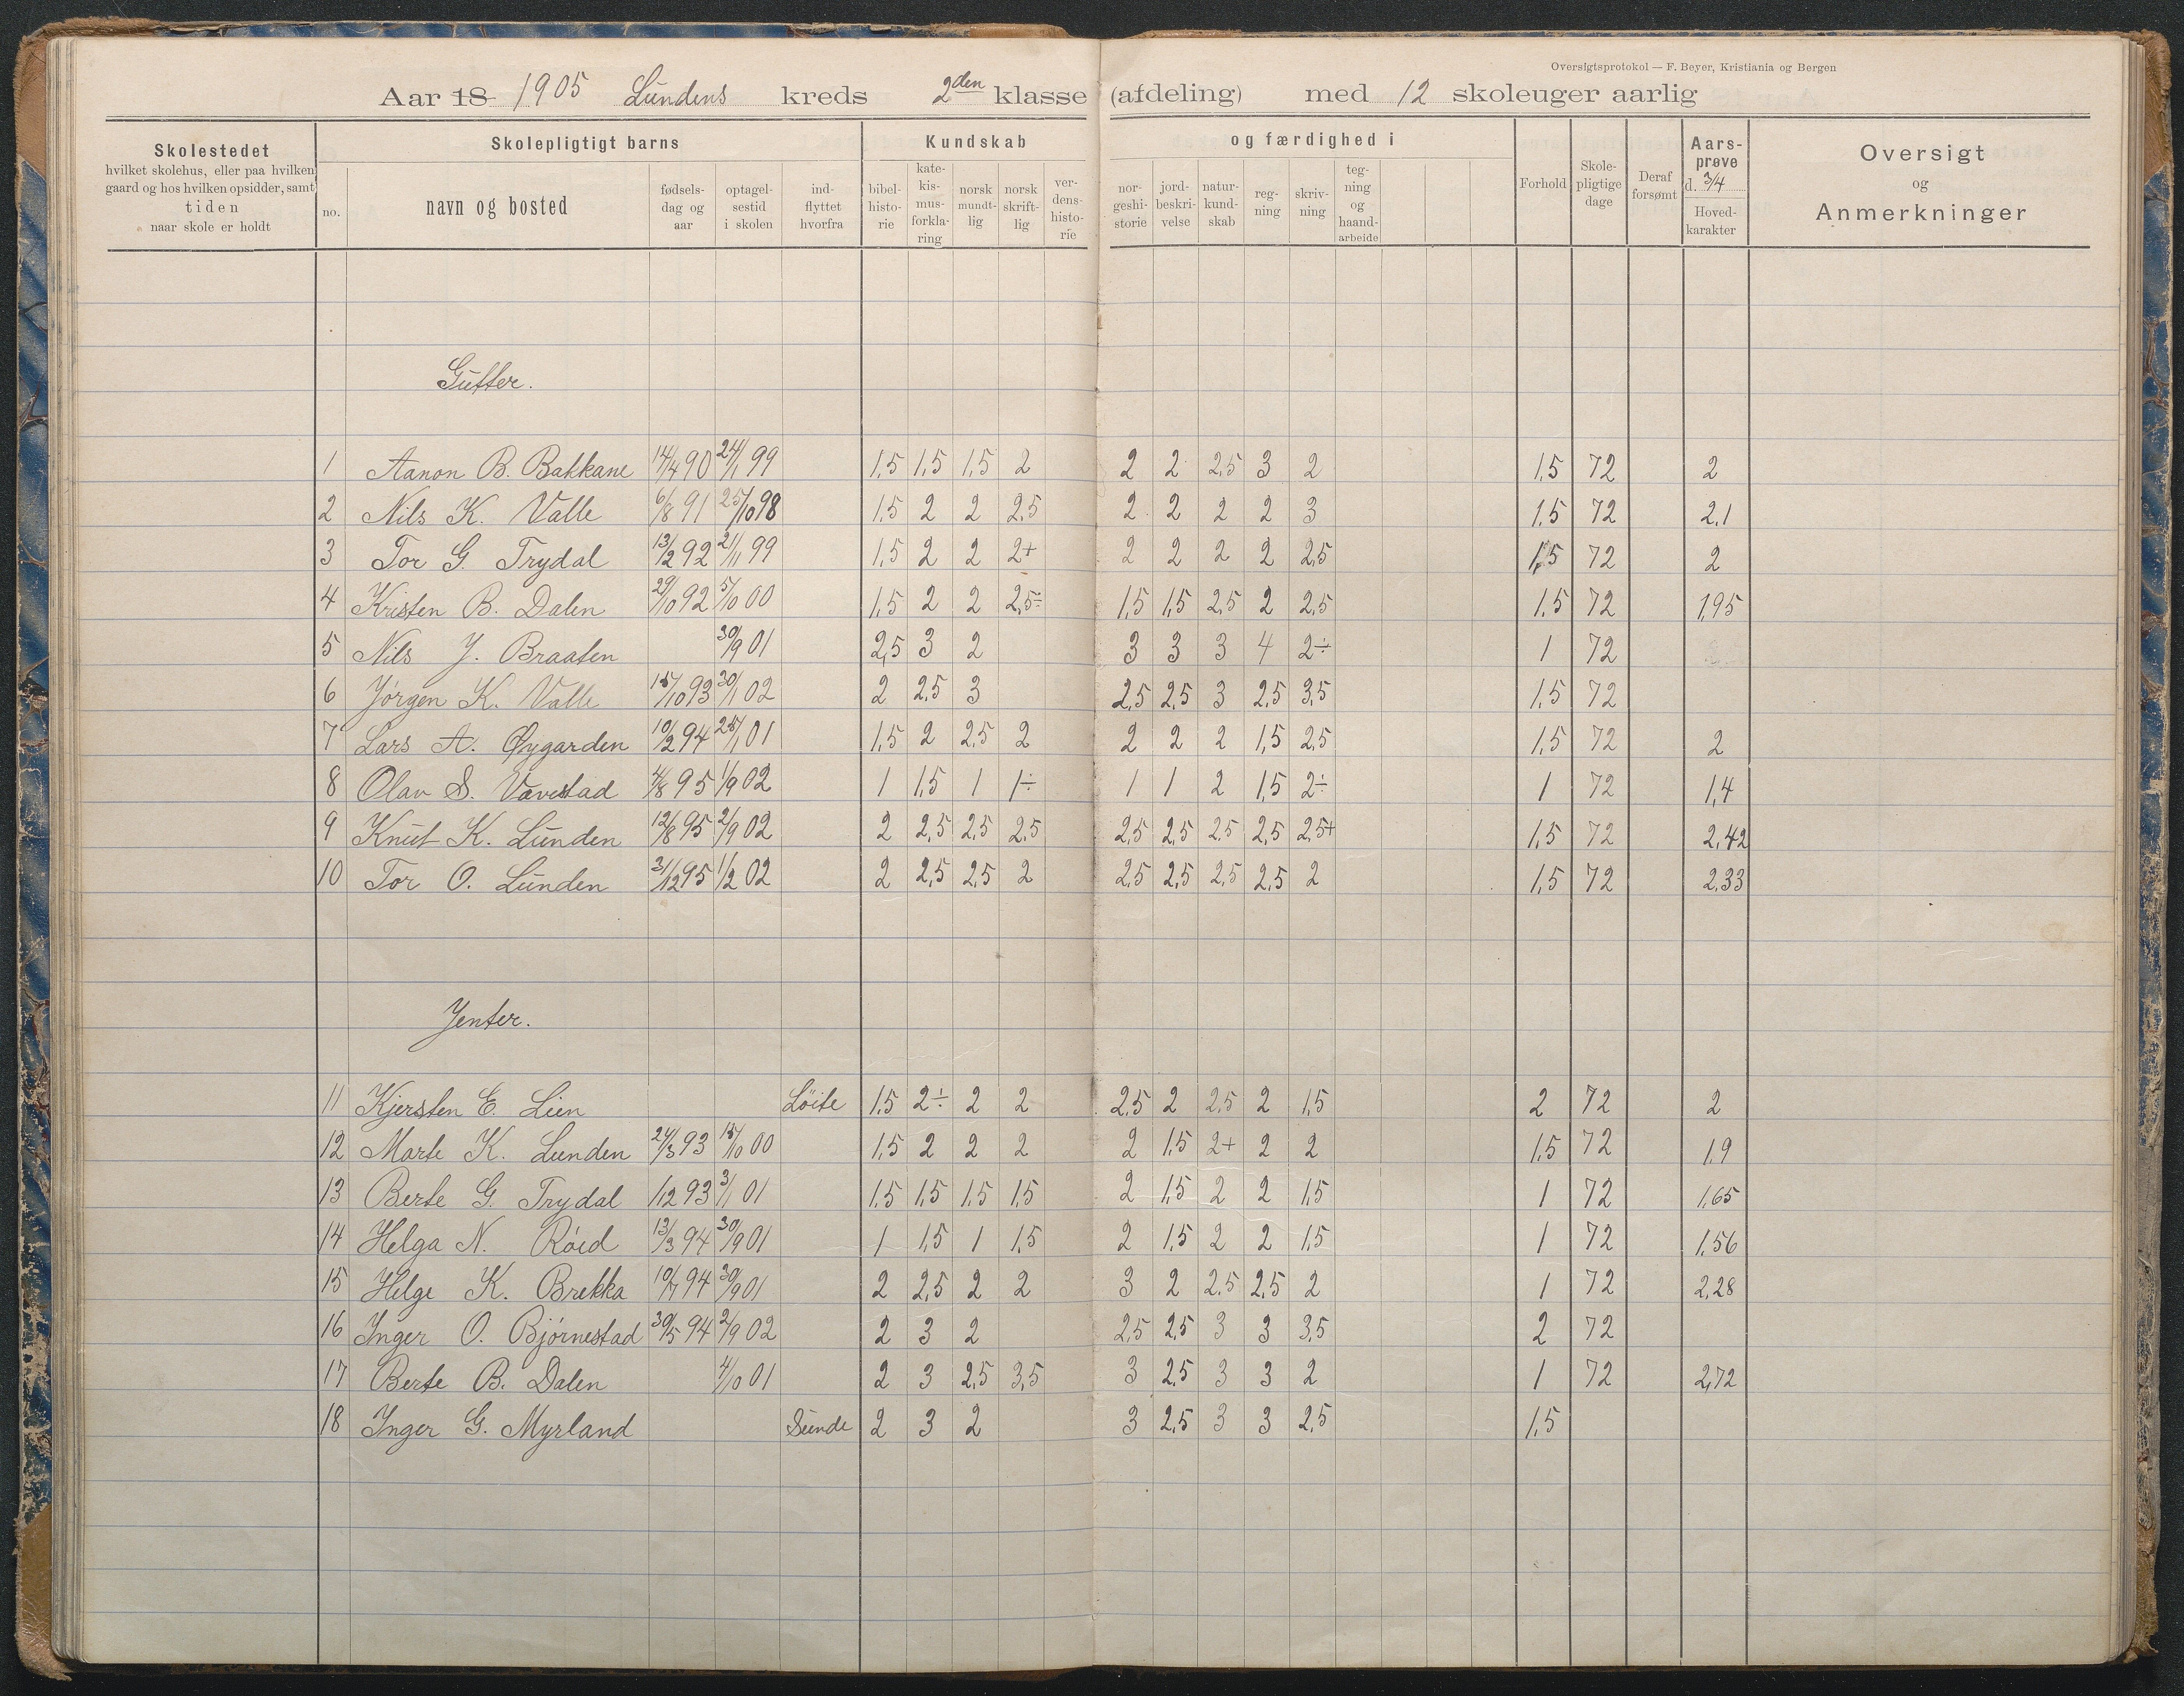 Oversigtsprotokol — F. Beyer, Kristiania og Bergen
Aar 18 1905 Lundens kreds 2den klasse (afdeling) med 12 skoleuger aarlig
Skolestedet
hvilket skolehus, eller paa hvilken
gaard og hos hvilken opsidder, samt
tiden
naar skole er holdt
Skolepligtigt barns
no.
navn og bosted
fødsels-
dag og
aar
optagel-
sestid
i skolen
ind-
flyttet
hvorfra
Kundskab
bibel-
histo-
rie
kate-
kis-
mus-
forkla-
ring
norsk
mundt-
lig
norsk
skrift-
lig
ver-
dens-
histo-
rie
og færdighed i
nor-
geshi-
storie
jord-
beskri-
velse
natur-
kund-
skab
reg-
ning
skriv-
ning
teg-
ning
og
haand-
arbeide
Forhold
Skole-
pligtige
dage
Deraf
forsømt
Aars-
prøve
d. 3/4
Hoved-
karakter
Oversigt
og
Anmerkninger
Gutter.
1 Aanon B. Bakkane 14/4 90 24/1 99 1,5 1,5 1,5 2 2 2 2,5 3 2 1,5 72 2
2 Nils K. Valle 6/8 91 25/10 98 1,5 2 2 2,5 2 2 2 2 3 1,5 72 2,1
3 Tor G. Trydal 13/2 92 21/11 99 1,5 2 2 2+ 2 2 2 2 2,5 1,5 72 2
4 Kristen B. Dalen 29/10 92 5/10 00 1,5 2 2 2,5÷ 1,5 1,5 2,5 2 2,5 1,5 72 1,95
5 Nils J. Braaten 30/9 01 2,5 3 2 3 3 3 4 2÷ 1 72
6 Jørgen K. Valle 15/10 93 30/1 02 2 2,5 3 2,5 2,5 3 2,5 3,5 1,5 72
7 Lars A. Øygarden 10/2 94 25/1 01 1,5 2 2,5 2 2 2 2 1,5 2,5 1,5 72 2
8 Olav S. Vævestad 4/8 95 1/9 02 1 1,5 1 1÷ 1 1 2 1,5 2÷ 1 72 1,4
9 Knut K. Lunden 12/8 95 2/9 02 2 2,5 2,5 2,5 2,5 2,5 2,5 2,5 2,5+ 1,5 72 2,42
10 Tor O. Lunden 31/12 95 1/2 02 2 2,5 2,5 2 2,5 2,5 2,5 2,5 2 1,5 72 2,33
Jenter.
11 Kjersten E. Lien Löite 1,5 2÷ 2 2 2,5 2 2,5 2 1,5 2 72 2
12 Marte K. Lunden 24/3 93 15/10 00 1,5 2 2 2 2 1,5 2+ 2 2 1,5 72 1,9
13 Berte G. Trydal 1/12 93 3/1 01 1,5 1,5 1,5 1,5 2 1,5 2 2 1,5 1 72 1,65
14 Helga N. Röed 13/3 94 30/9 01 1 1,5 1 1,5 2 1,5 2 2 1,5 1 72 1,56
15 Helge K. Brekka 10/7 94 30/9 01 2 2,5 2 2 3 2 2,5 2,5 2 1 72 2,28
16 Inger O. Bjørnestad 30/5 94 2/9 02 2 3 2 2,5 2,5 3 3 3,5 2 72
17 Berte B. Dalen 4/10 01 2 3 2,5 3,5 3 2,5 3 3 2 1 72 2,72
18 Inger G. Myrland Sunde 2 3 2 3 2,5 3 3 2,5 1,5